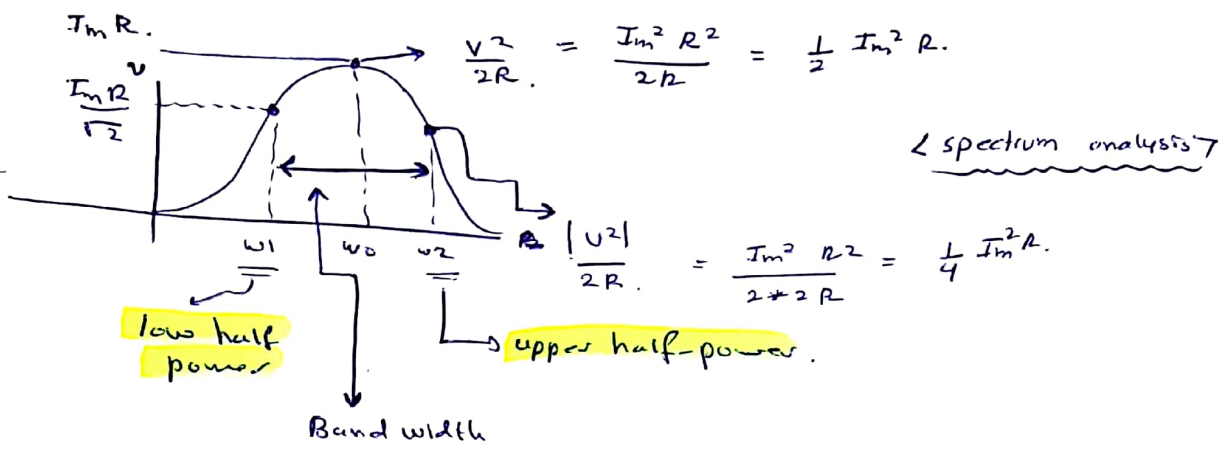 Im R.
V² / 2R. = Im² R² / 2R = 1/2 Im² R.
v
Im R / √2
< spectrum analysis >
w1 w0 w2
|V²| / 2R. = Im² R² / 2*2R = 1/4 Im² R.
low half
power
upper half-power.
Band width